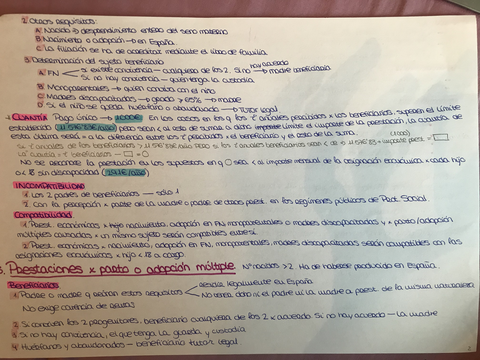 2. Otros requisitos:
A) Nacido → desprendimiento entero del seno materno
B) Nacimiento o adopción → en España.
C) La filiación se ha de acreditar mediante el libro de familia.
3. Determinación del sujeto beneficiario
A) FN si existe convivencia – cualquiera de los 2. Si no hay acuerdo → madre beneficiaria
Si no hay convivencia – quien tenga la custodia
B) Monoparentales → quien conviva con el niño
C) Madres discapacitadas → grado > 65% → madre
D) Si el niño se queda huérfano o abandonado → tutor legal
CUANTÍA Pago único → 1000€ En los casos en los q los ↑ anuales percibidos x los beneficiarios, superen el límite
establecido pero sean < al esto de sumar a dicho importe límite el importe de la prestación, la cuantía de
esta última será = a la diferencia entre los ↑ percibidos x el beneficiario y el esto de la suma.
(1000)
No se reconoce la prestación en los supuestos en q sea < al importe mensual de la asignación económica x cada hijo
< 18 sin discapacidad
INCOMPATIBILIDAD
1. Los 2 padres de beneficiarios — sólo 1
2. Con la percepción x parte de la madre o padre de otras prest. en los regímenes públicos de Prot. Social.
Compatibilidad
1. Prest. económicas x hijo nacimiento, adopción en FN, monoparentales o madres discapacitadas y x parto/adopción
múltiples causadas x un mismo sujeto serán compatibles entre sí.
2. Prest. económicas x nacimiento, adopción en FN, monoparentales, madres discapacitadas serán compatibles con las
asignaciones económicas x hijo < 18 a cargo.
3. Prestaciones x parto o adopción múltiple Nº nacidos > 2 Ha de haberse producido en España.
Beneficiarios
1. Padre o madre q reúnan estos requisitos residir legalmente en España
No tener dcho ni el padre ni la madre a prest. de la misma naturaleza
No exige carencia de rentas
2. Si conviven los 2 progenitores: beneficiario cualquiera de los 2 x acuerdo. Si no hay acuerdo – la madre
3. Si no hay convivencia, el que tenga la guarda y custodia
4. Huérfanos y abandonados – beneficiario tutor legal